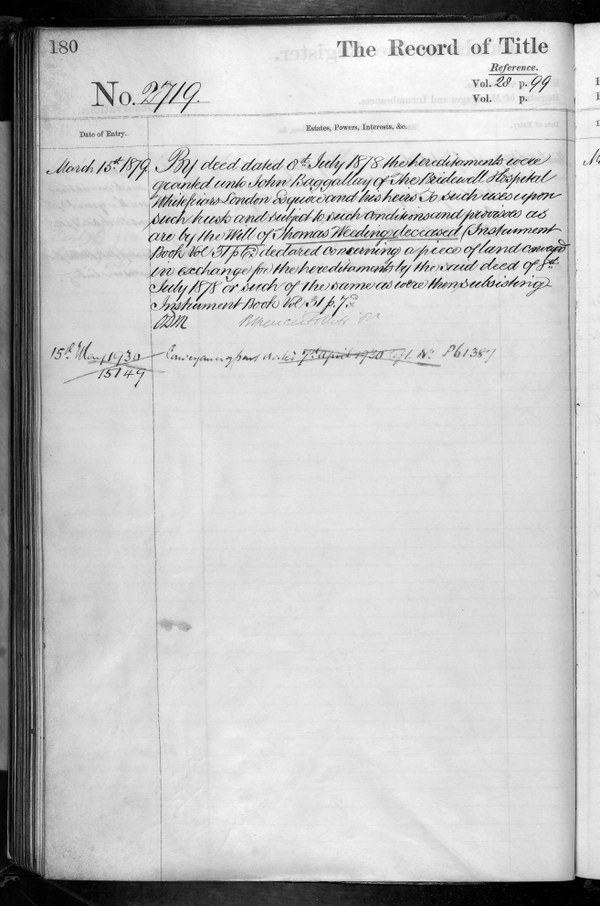 180
The Record of Title
Reference.
No. 2719.
Vol. 28 p. 99
Vol. p.
Date of Entry.
Estates, Powers, Interests, &c.
March 15th 1879
By deed dated 8th July 1878 the hereditaments were
granted unto John Baggallay of The Bridewell Hospital
Whitefriars London Esquire and his heirs To such uses upon
such trusts and subject to such conditions and provisoes as
are by the Will of Thomas Weeding deceased (Instrument
Book Vol 31 p 62) declared concerning a piece of land conveyed
in exchange for the hereditaments by the said deed of 8th
July 1878 or such of the same as were then subsisting
Instrument Book Vol 31 p. 73
15th May 1930
15149
Conveyance of part dated 7th April 1930 No. P61387